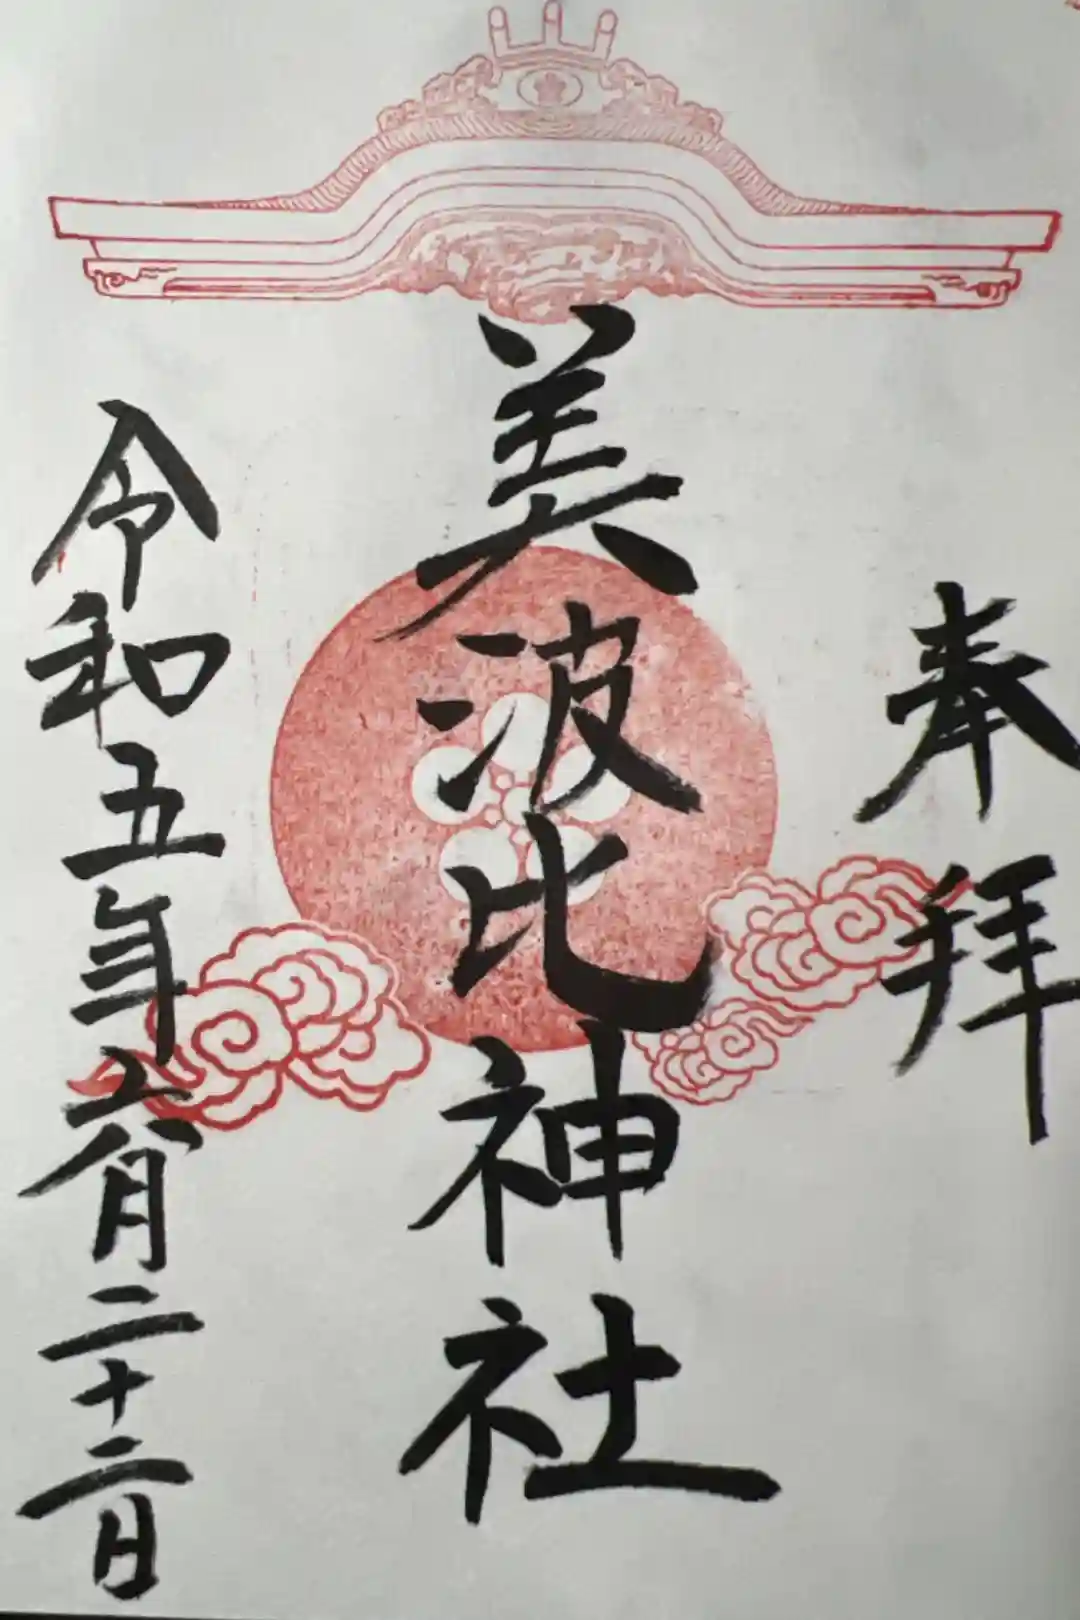 奉拝
美波比神社
令和五年六月二十二日